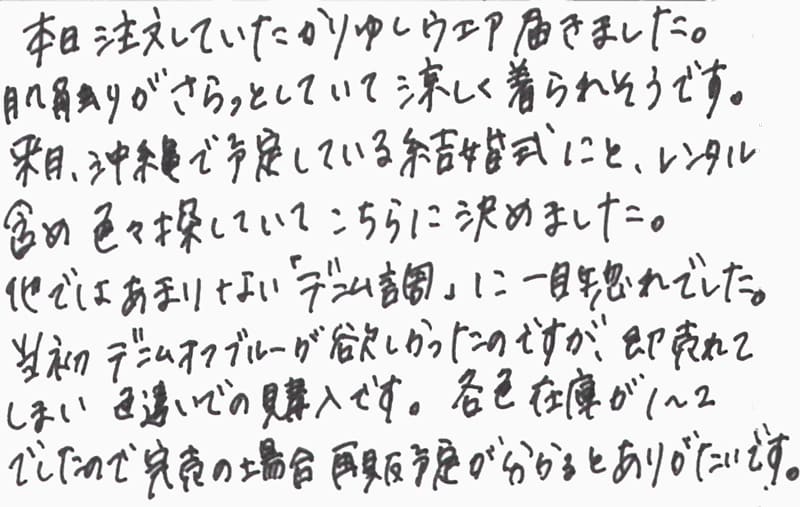 本日注文していたかりゆしウエア届きました。
肌触りがさらっとしていて涼しく着られそうです。
来月、沖縄で予定している結婚式にと、レンタル
含め色々探していてこちらに決めました。
他ではあまりない「デニム調」に一目惚れでした。
当初デニムオフブルーが欲しかったのですが、即売れて
しまい色違いでの購入です。各色在庫が1〜2
でしたので完売の場合再販予定が分かるとありがたいです。